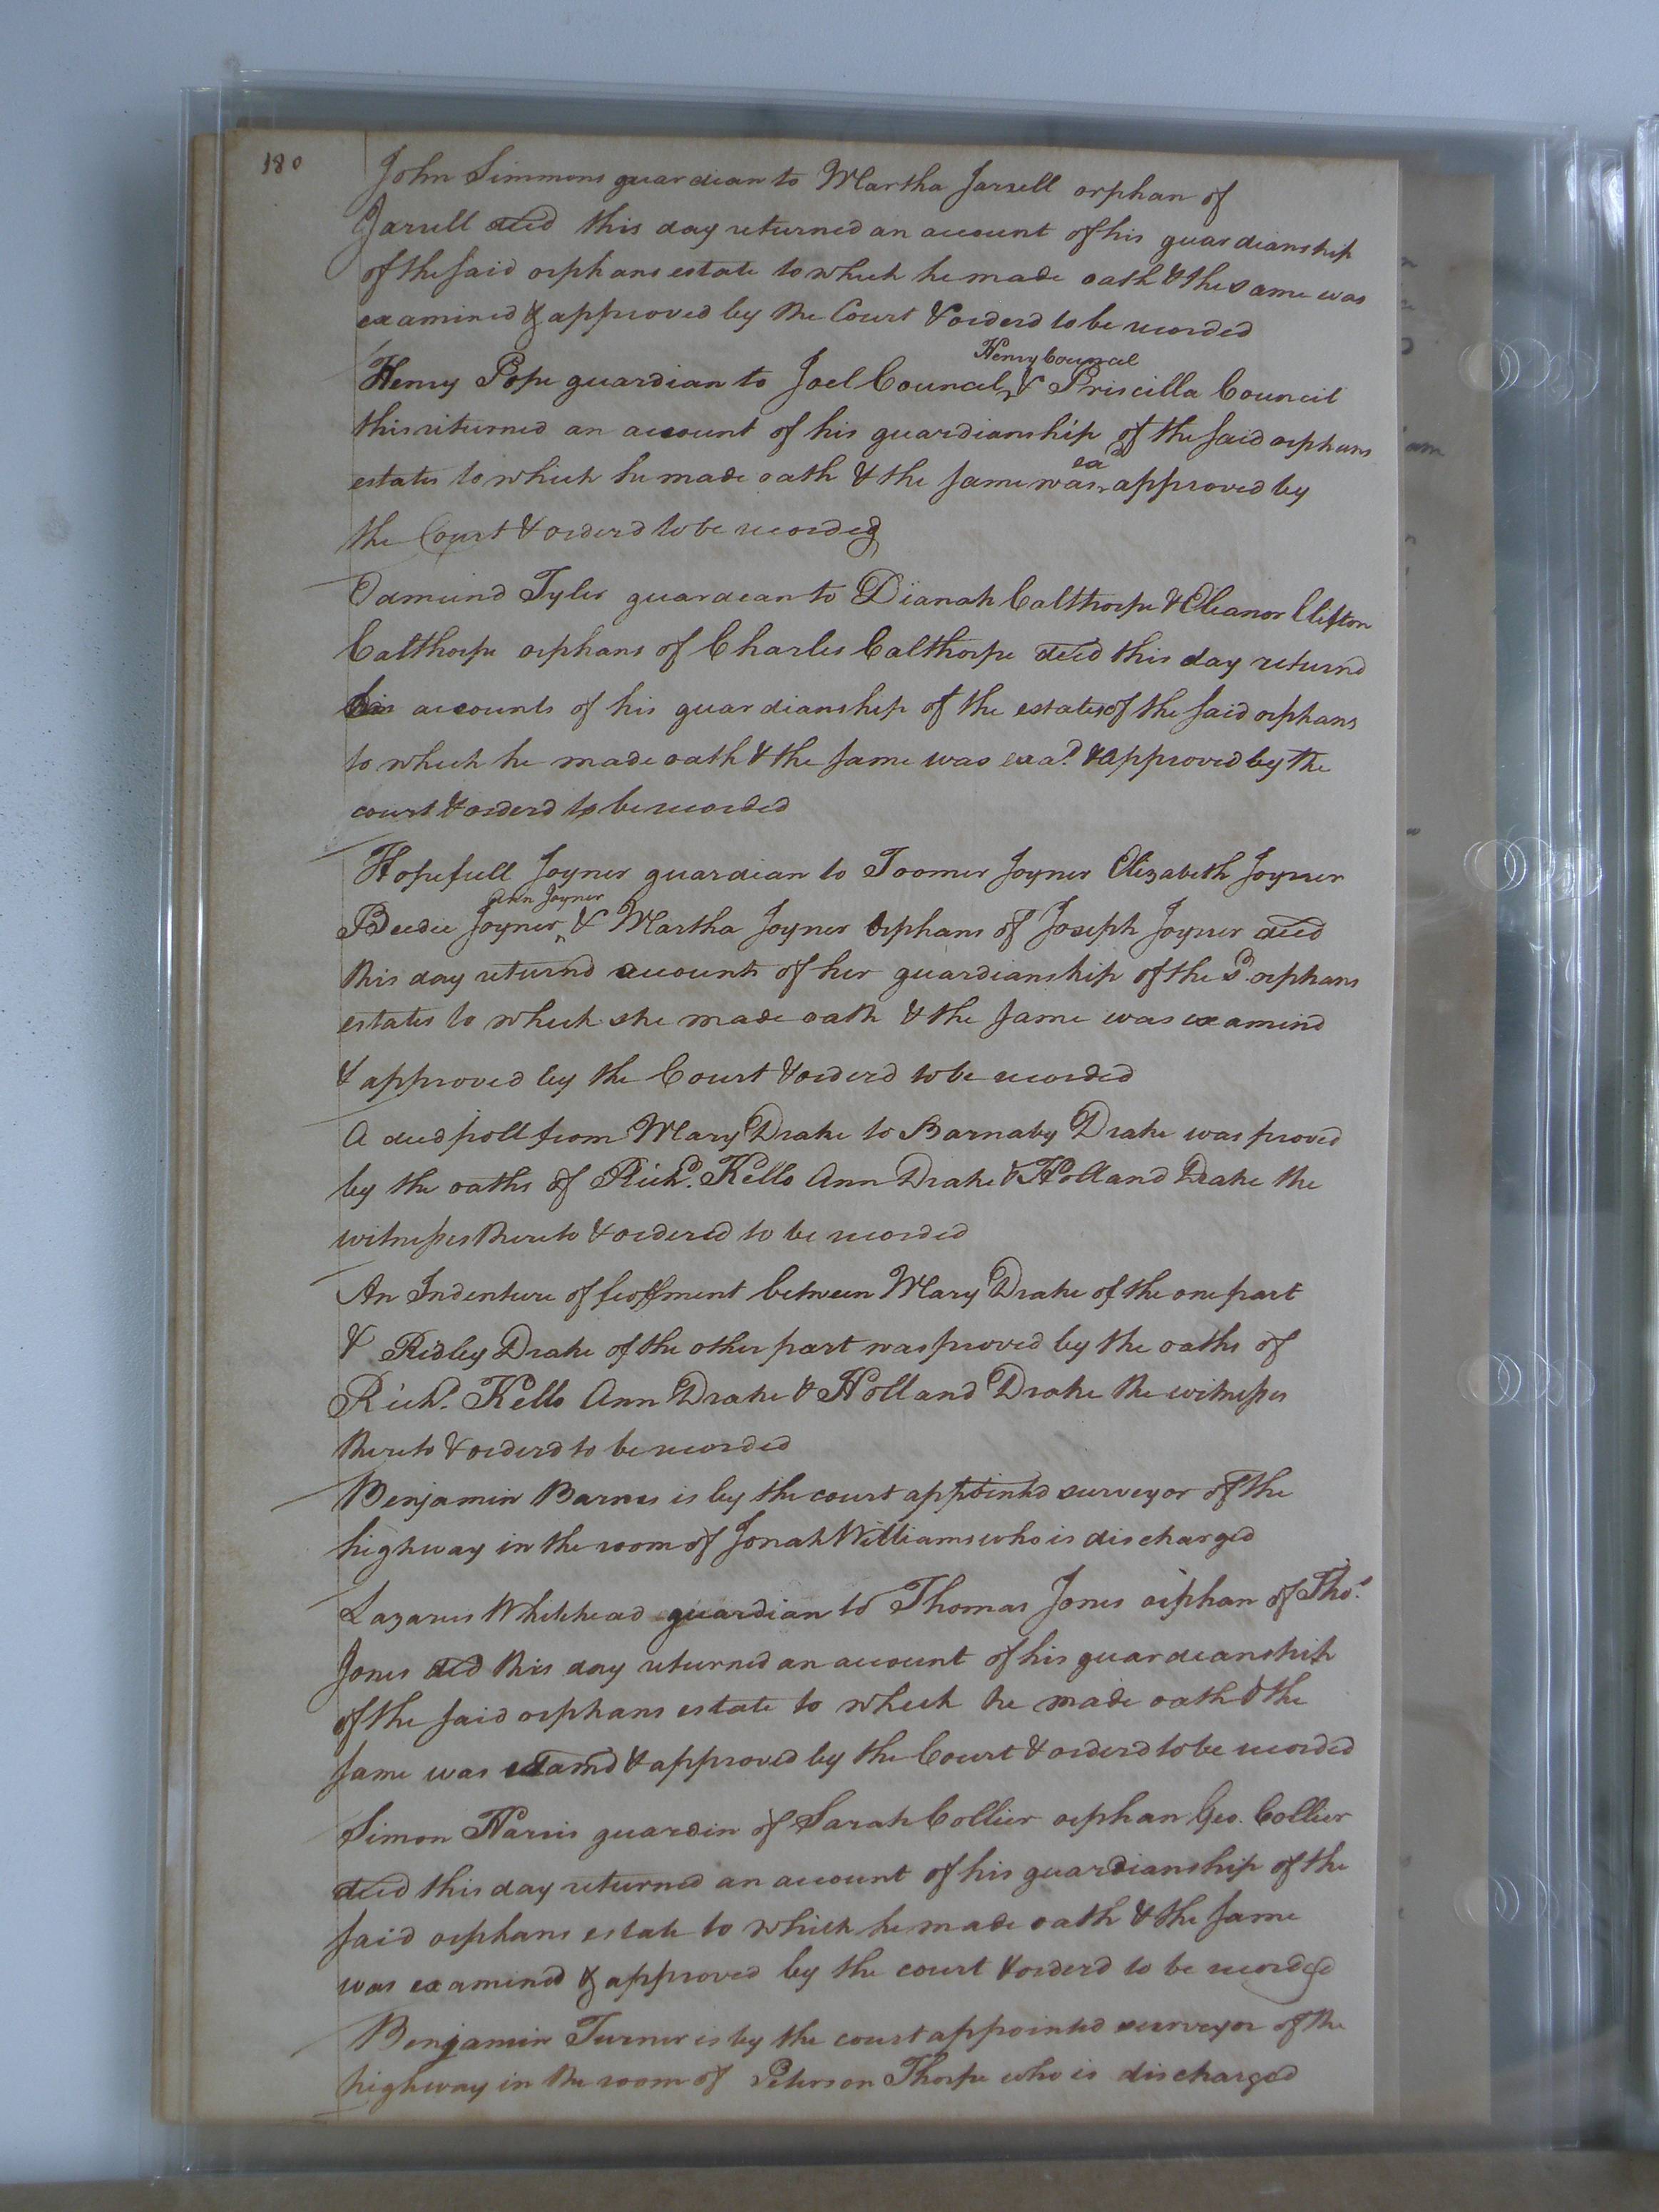 180
John Simmons guardian to Martha Jarrell orphan of
Jarrell decd this day returned an account of his guardianship
of the said orphans estate to which he made oath & the same was
examined & approved by the Court & orderd to be recorded
Henry Council
Henry Pope guardian to Joel Council & Priscilla Council
this returned an account of his guardianship of the said orphans
estates to which he made oath & the same was exd approved by
the Court & orderd to be recorded
Edmund Tyler guardean to Dianah Calthorpe & Eleanor Clifton
Calthorpe orphans of Charles Calthorpe decd this day returnd
his accounts of his guardianship of the estates of the said orphans
to which he made oath & the same was exad. & approved by the
court & orderd to be recorded
Hopefull Joyner guardian to Toomer Joyner Elizabeth Joyner
Ann Joyner
Beedie Joyner & Martha Joyner orphans of Joseph Joyner decd
this day returnd accounts of her guardianship of the sd. orphans
estates to which she made oath & the same was examind
& approved by the Court & orderd to be recorded
A deed poll from Mary Drake to Barnaby Drake was proved
by the oaths of Richd. Kello Ann Drake & Holland Drake the
witnesses thereto & ordered to be recorded
An Indenture of feoffment between Mary Drake of the one part
& Ridley Drake of the other part was proved by the oaths of
Richd. Kello Ann Drake & Holland Drake the witnesses
thereto & orderd to be recorded
Benjamin Barnes is by the court appointed surveyor of the
highway in the room of Jonah Williams who is discharged
Lazarus Whitehead guardian to Thomas Jones orphan of Thos.
Jones decd this day returned an account of his guardeanship
of the said orphans estate to which he made oath & the
same was examd & approved by the Court & orderd to be recorded
Simon Harris guardin of Sarah Collier orphan Geo. Collier
decd this day returned an account of his guardianship of the
said orphans estate to which he made oath & the same
was examined & approved by the court & orderd to be recorded
Benjamin Turner is by the court appointed surveyor of the
highway in the room of Peterson Thorpe who is discharged